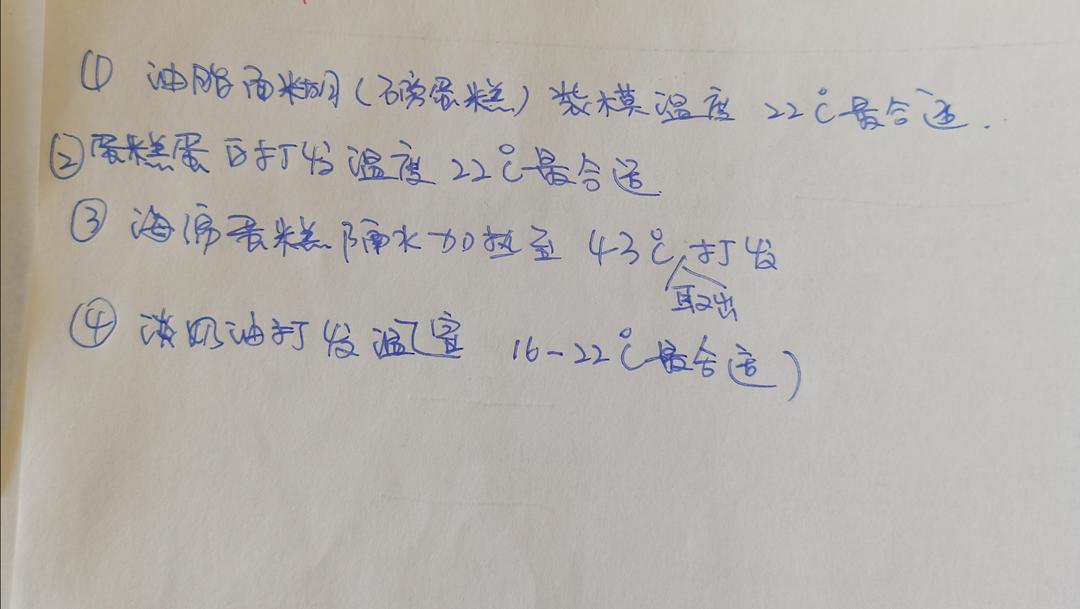 ① 油脂面糊(磅蛋糕)装模温度 22℃最合适.
② 蛋糕蛋白打发温度 22℃最合适
③ 海绵蛋糕隔水加热至 43℃打发
取出
④ 淡奶油打发温 16-22℃最合适)